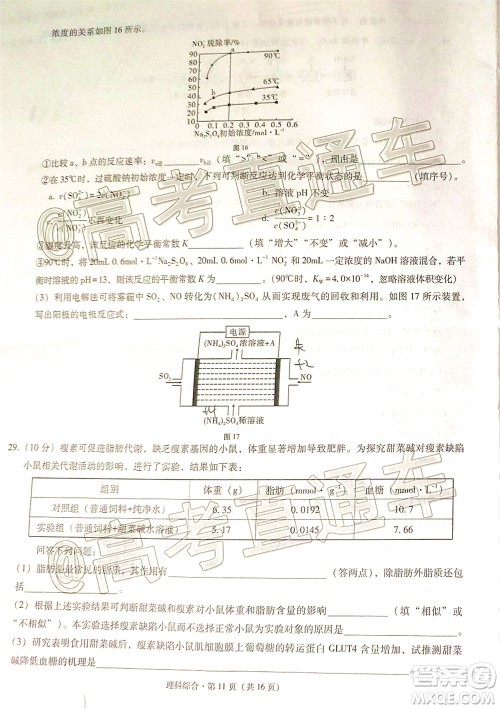 浓度的关系如图16所示。
NO₃⁻脱除率/%
100
90
80
70
60
50
40
30
20
10
0
90℃
65℃
35℃
a
b
0.1 0.2 0.3 0.4 0.5 0.6
Na₂S₂O₈初始浓度/mol·L⁻¹
图16
①比较a、b点的反应速率：
(填“>”“<”或“=”)，理由是
。
②在35℃时，过硫酸钠初始浓度一定时，下列可以表示反应达到化学平衡状态的是
(填序号)。
b. 溶液pH不变
d.
= 1 : 2
③温度升高，该反应的化学平衡常数K
(填“增大”“不变”或“减小”)。
④90℃时，将20mL 0.6mol·L⁻¹ Na₂S₂O₈、20mL 0.6mol·L⁻¹
和20mL一定浓度的NaOH溶液混合，若平
衡时溶液的pH=13，则该反应的平衡常数K为
。(90℃时，
=4.0×10⁻¹⁴，忽略溶液体积变化)
(3) 利用电解法可将雾霾中SO₂、NO转化为(NH₄)₂SO₄，从而实现废气的回收和利用。如图17所示装置，
写出阳极的电极反应式：
，A：
。
电源
(NH₄)₂SO₄浓溶液+A
SO₂
NO
(NH₄)₂SO₄稀溶液
图17
+4
+2
29. (10分) 瘦素可促进脂肪代谢，缺乏瘦素基因的小鼠，体重显著增加导致肥胖。为探究甜菜碱对瘦素缺陷
小鼠相关代谢活动的影响，进行了实验，结果如下表：
组别 体重 (g) 脂肪 (mmol·gm⁻¹) 血糖 (mmol·L⁻¹)
对照组 (普通饲料+纯净水) 6.35 0.0192 9.14
实验组 (普通饲料+甜菜碱水溶液) 5.17 0.0145 7.66
回答下列问题：
(1)
(答两点)，除此外脂肪外脂质还有
。
(2) 根据上述结果可判断甜菜碱和瘦素对小鼠体重和脂肪代谢的影响
(填“相似”或
“不相似”)。本实验中选择瘦素缺陷小鼠而不选择正常小鼠的原因是
。
(3) 研究表明食用甜菜碱后，瘦素缺陷小鼠肌细胞上葡萄糖的转运蛋白GLUT4含量增加，试推测甜菜
碱降低血糖的机理是
。
理科综合·第11页 (共16页)
@高考直通车
@高考直通车
答案圈